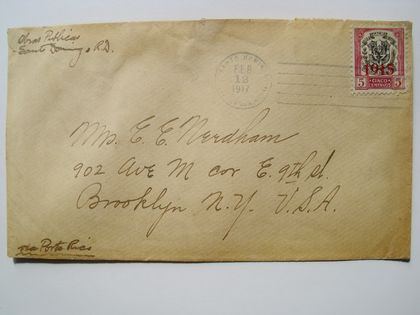 Obras Publicas
Santo Domingo, R.D.
SANTO DOMIN
FEB
12
1917
1915
5 CINCO 5
CENTAVOS
Mrs. E. E. Needham
902 Ave M cor E. 9th st.
Brooklyn N.Y. U.S.A.
via Porto Rico